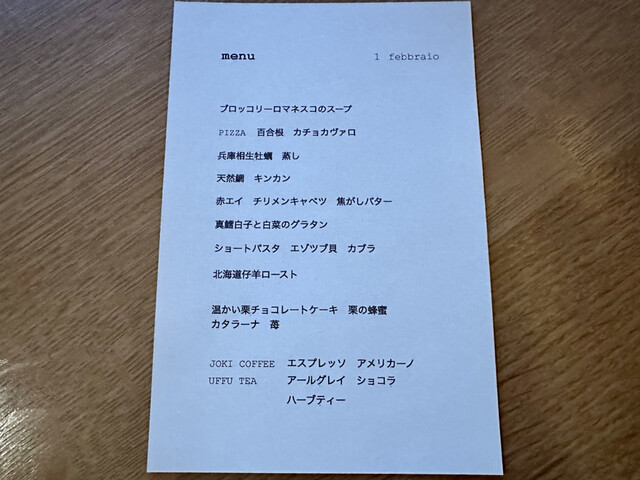 menu 1 febbraio
ブロッコリーロマネスコのスープ
PIZZA 百合根 カチョカヴァロ
兵庫相生牡蠣 蒸し
天然鯛 キンカン
赤エイ チリメンキャベツ 焦がしバター
真鱈白子と白菜のグラタン
ショートパスタ エゾツブ貝 カブラ
北海道仔羊ロースト
温かい栗チョコレートケーキ 栗の蜂蜜
カタラーナ 苺
JOKI COFFEE エスプレッソ アメリカーノ
UFFU TEA アールグレイ ショコラ
ハーブティー